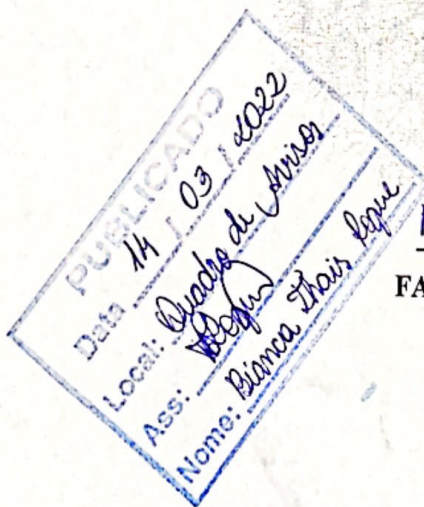 PUBLICADO
Data 14 / 03 / 2022
Local: Quadro de Avisos
Ass:
Nome: Bianca Thais
FA